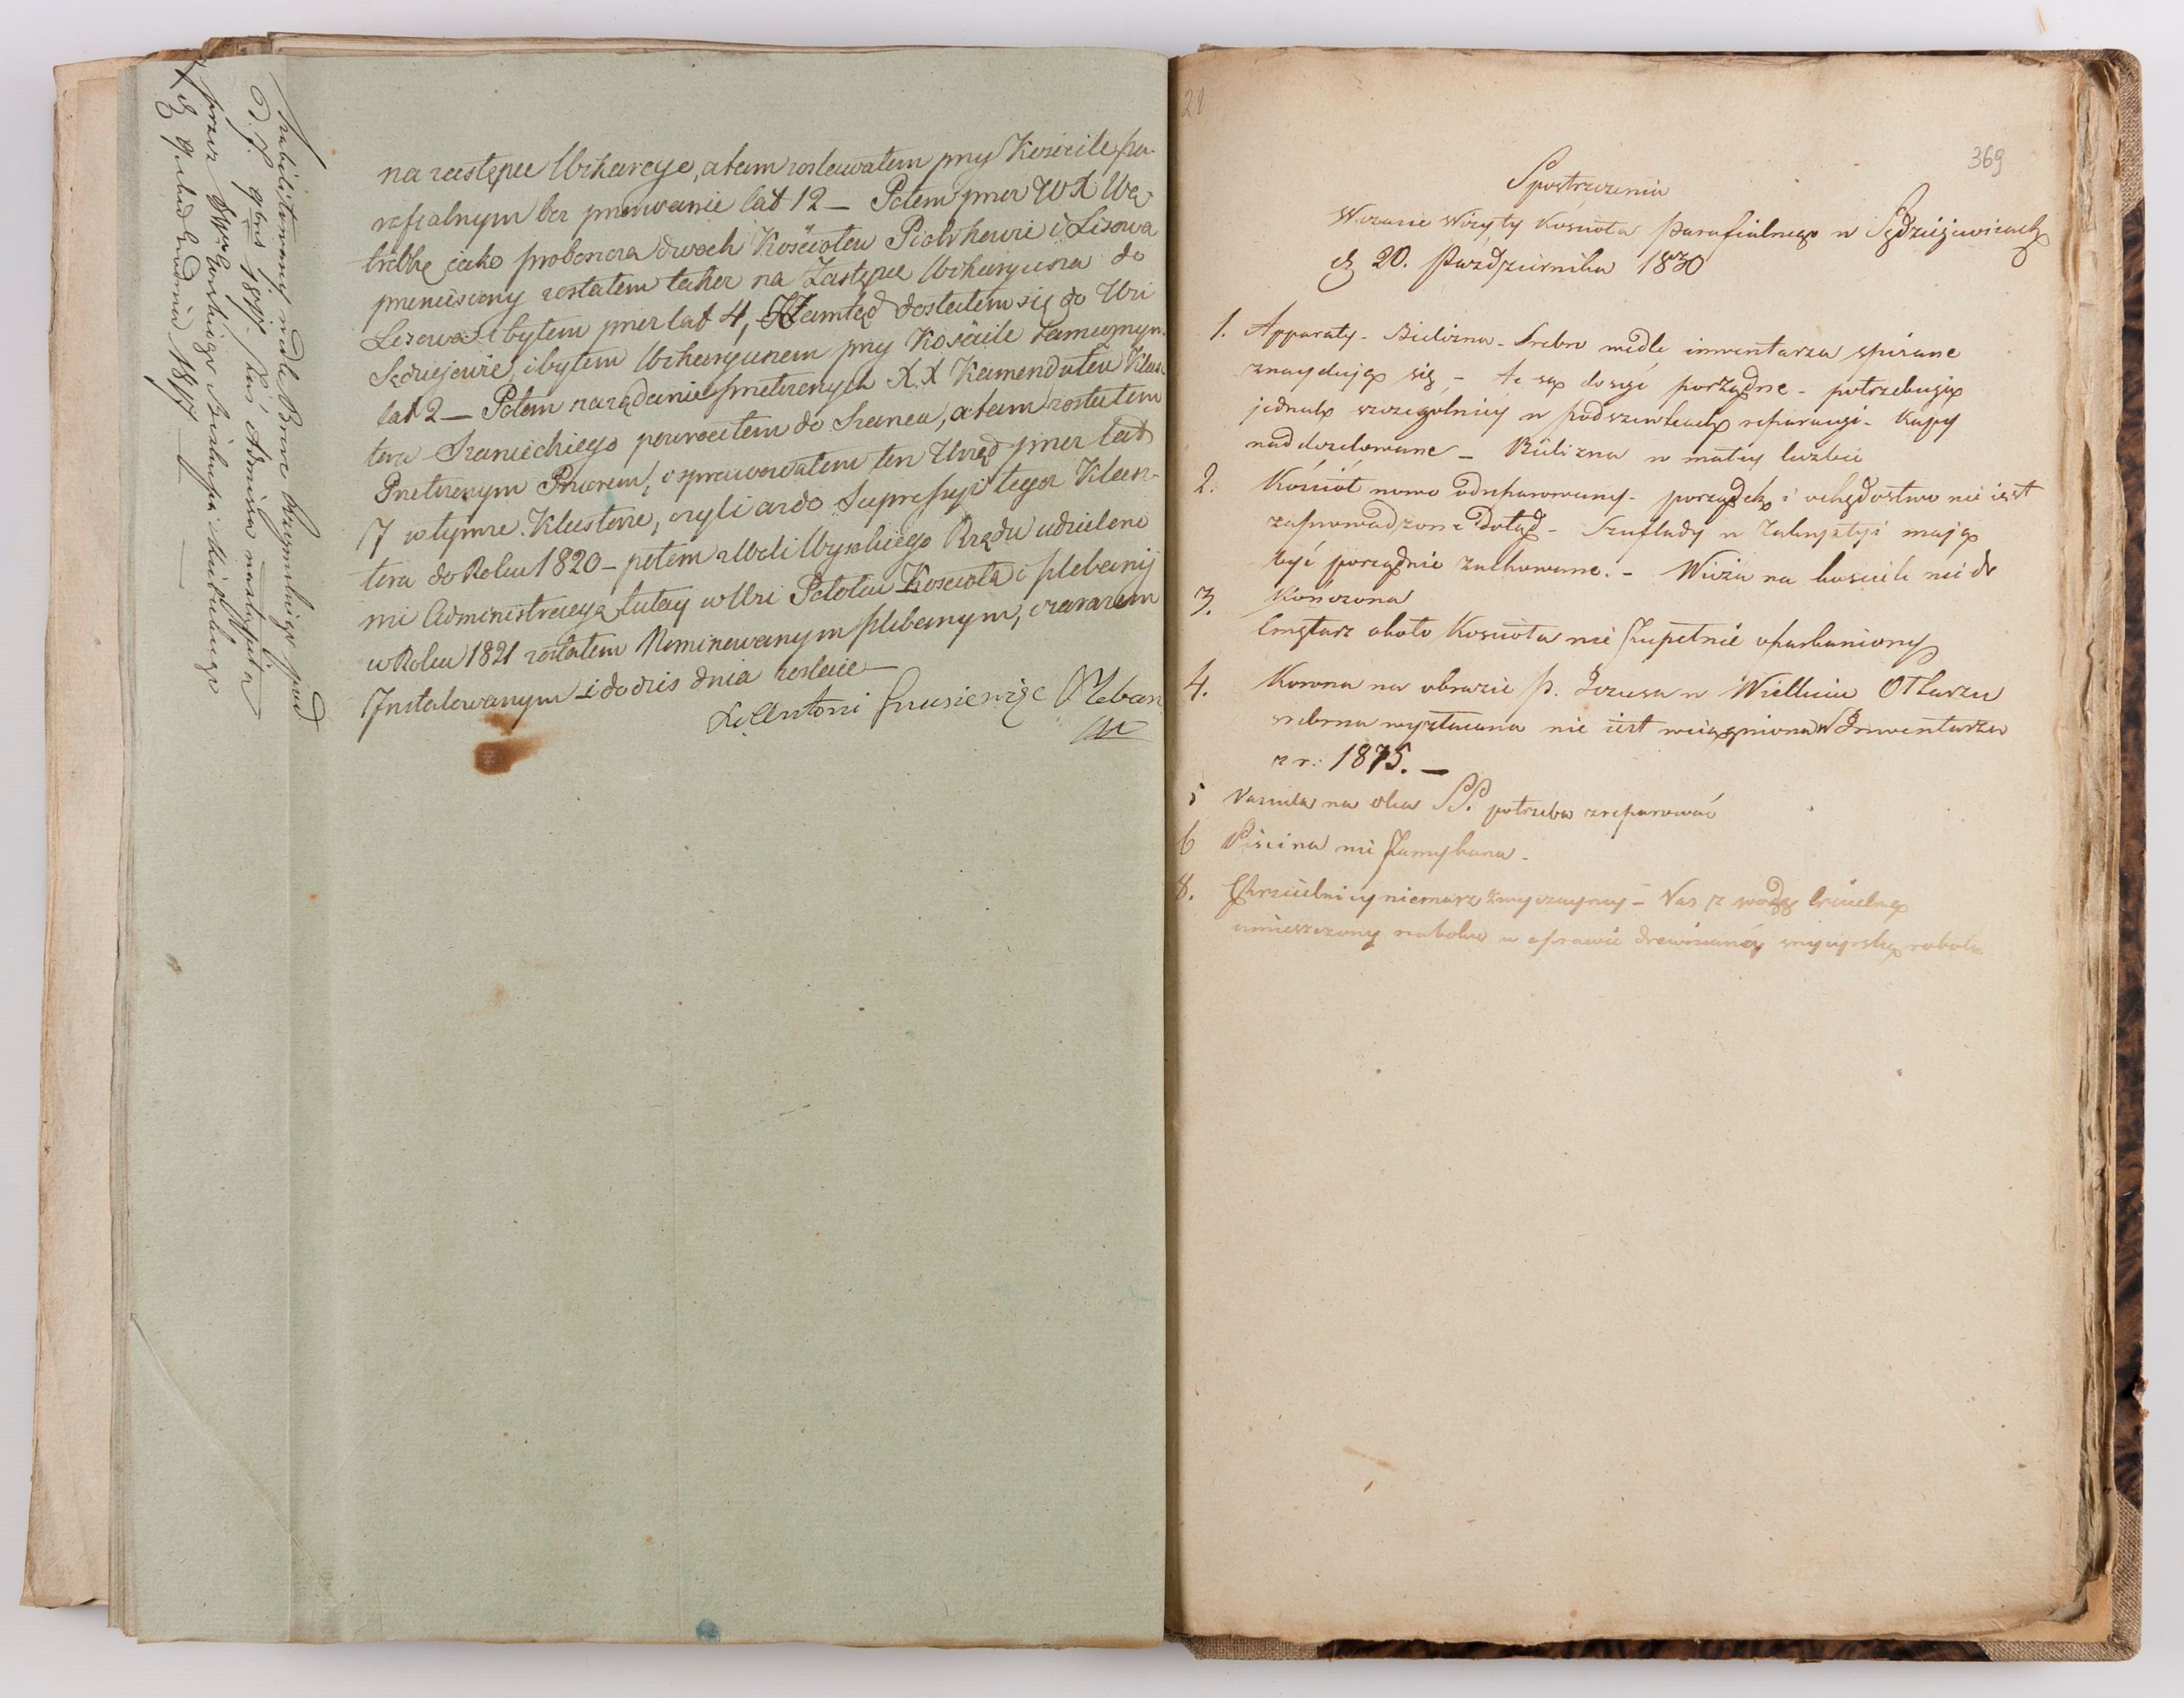 na zastępce Wikarego, a tam zostawałem przy Kościele pa-
rafialnym bez przerwanie lat 12 — Potem przez WX Wą-
trobkę jako proboszcza dwoch Kościołów Piotrkowic i Lisowa
przeniesiony zostałem także na Zastępce Wikaryusza do
Lisowa i byłem przez lat 4, Ztamtąd dostałem się do Wsi
Sędziejowic, i byłem Wikaryuszem przy Kościele tamecznym
lat 2 — Potem na żądanie przełożonych X.X Komendatów Klasz
tora Szanieckiego powrociłem do Szańca, a tam zostałem
Przełożonym Priorem, i sprawowałem ten Urząd przez lat
7 w tymże Klasztorze, czyli aż do Supressyi tegoż Klasz-
tora do Roku 1820 — potem z Woli Wysokiego Rządu udzielono
mi Administracyą tutay w Wsi Potoku Kościoła i plebanij
w Roku 1821 zostałem Nominowanym plebanym, i zararazem
Instalowanym — i do dziś dnia zostaie —
X. Antoni Pleban
mp
habilitowany wedle Breve Oryginalnego pod
d. 9bris 18 Administratora
przez Biskupa
d. 9 Grudnia 18
21
369
Spostrzeżenia
W czasie Wizyty Kościoła parafialnego w Sędziejowicach
d. 20. Października 1830
1. Apparaty - Bielizna - Srebro wedle inwentarza spisane
znayduią się, - te są dosyć porządne - potrzebuią
jednak szczegolniey w podszewkach reparacyi - Kapy
naddezelowane — Bielizna w małey liczbie
2. Kościół nowo odreparowany - porządek i ochędostwo nie iest
zaprowadzone Dotąd - Szuflady w Zakrystyi maią
być porządnie zachowane. - Wieża na kościele nie do
Kończona
3. Cmętarz około Kościoła nie Zupełnie oparkaniony
4. Korona na obrazie P. Jezusa w Wielkim Ołtarzu
srebrna wyzłacana nie iest wciągniona w Inwentarzu
z r: 1875. —
5 Vascula na olea SS. potrzeba zreparować
6 Piscina nie Zamykana -
8. Chrzcielnicy niemasz zwyczayney - Vas z wodą krzcielną
umieszczony na boku w oprawie drewnianey snycyrską robotą